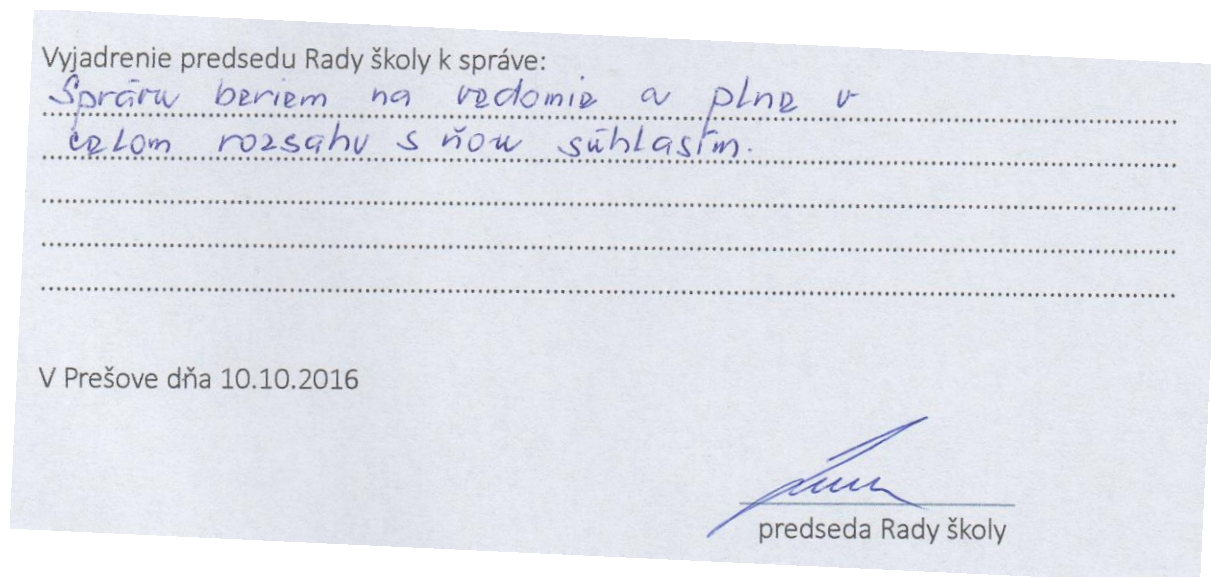 Vyjadrenie predsedu Rady školy k správe:
Správu beriem na vedomie a plne v
celom rozsahu s ňou súhlasím.
V Prešove dňa 10.10.2016
predseda Rady školy